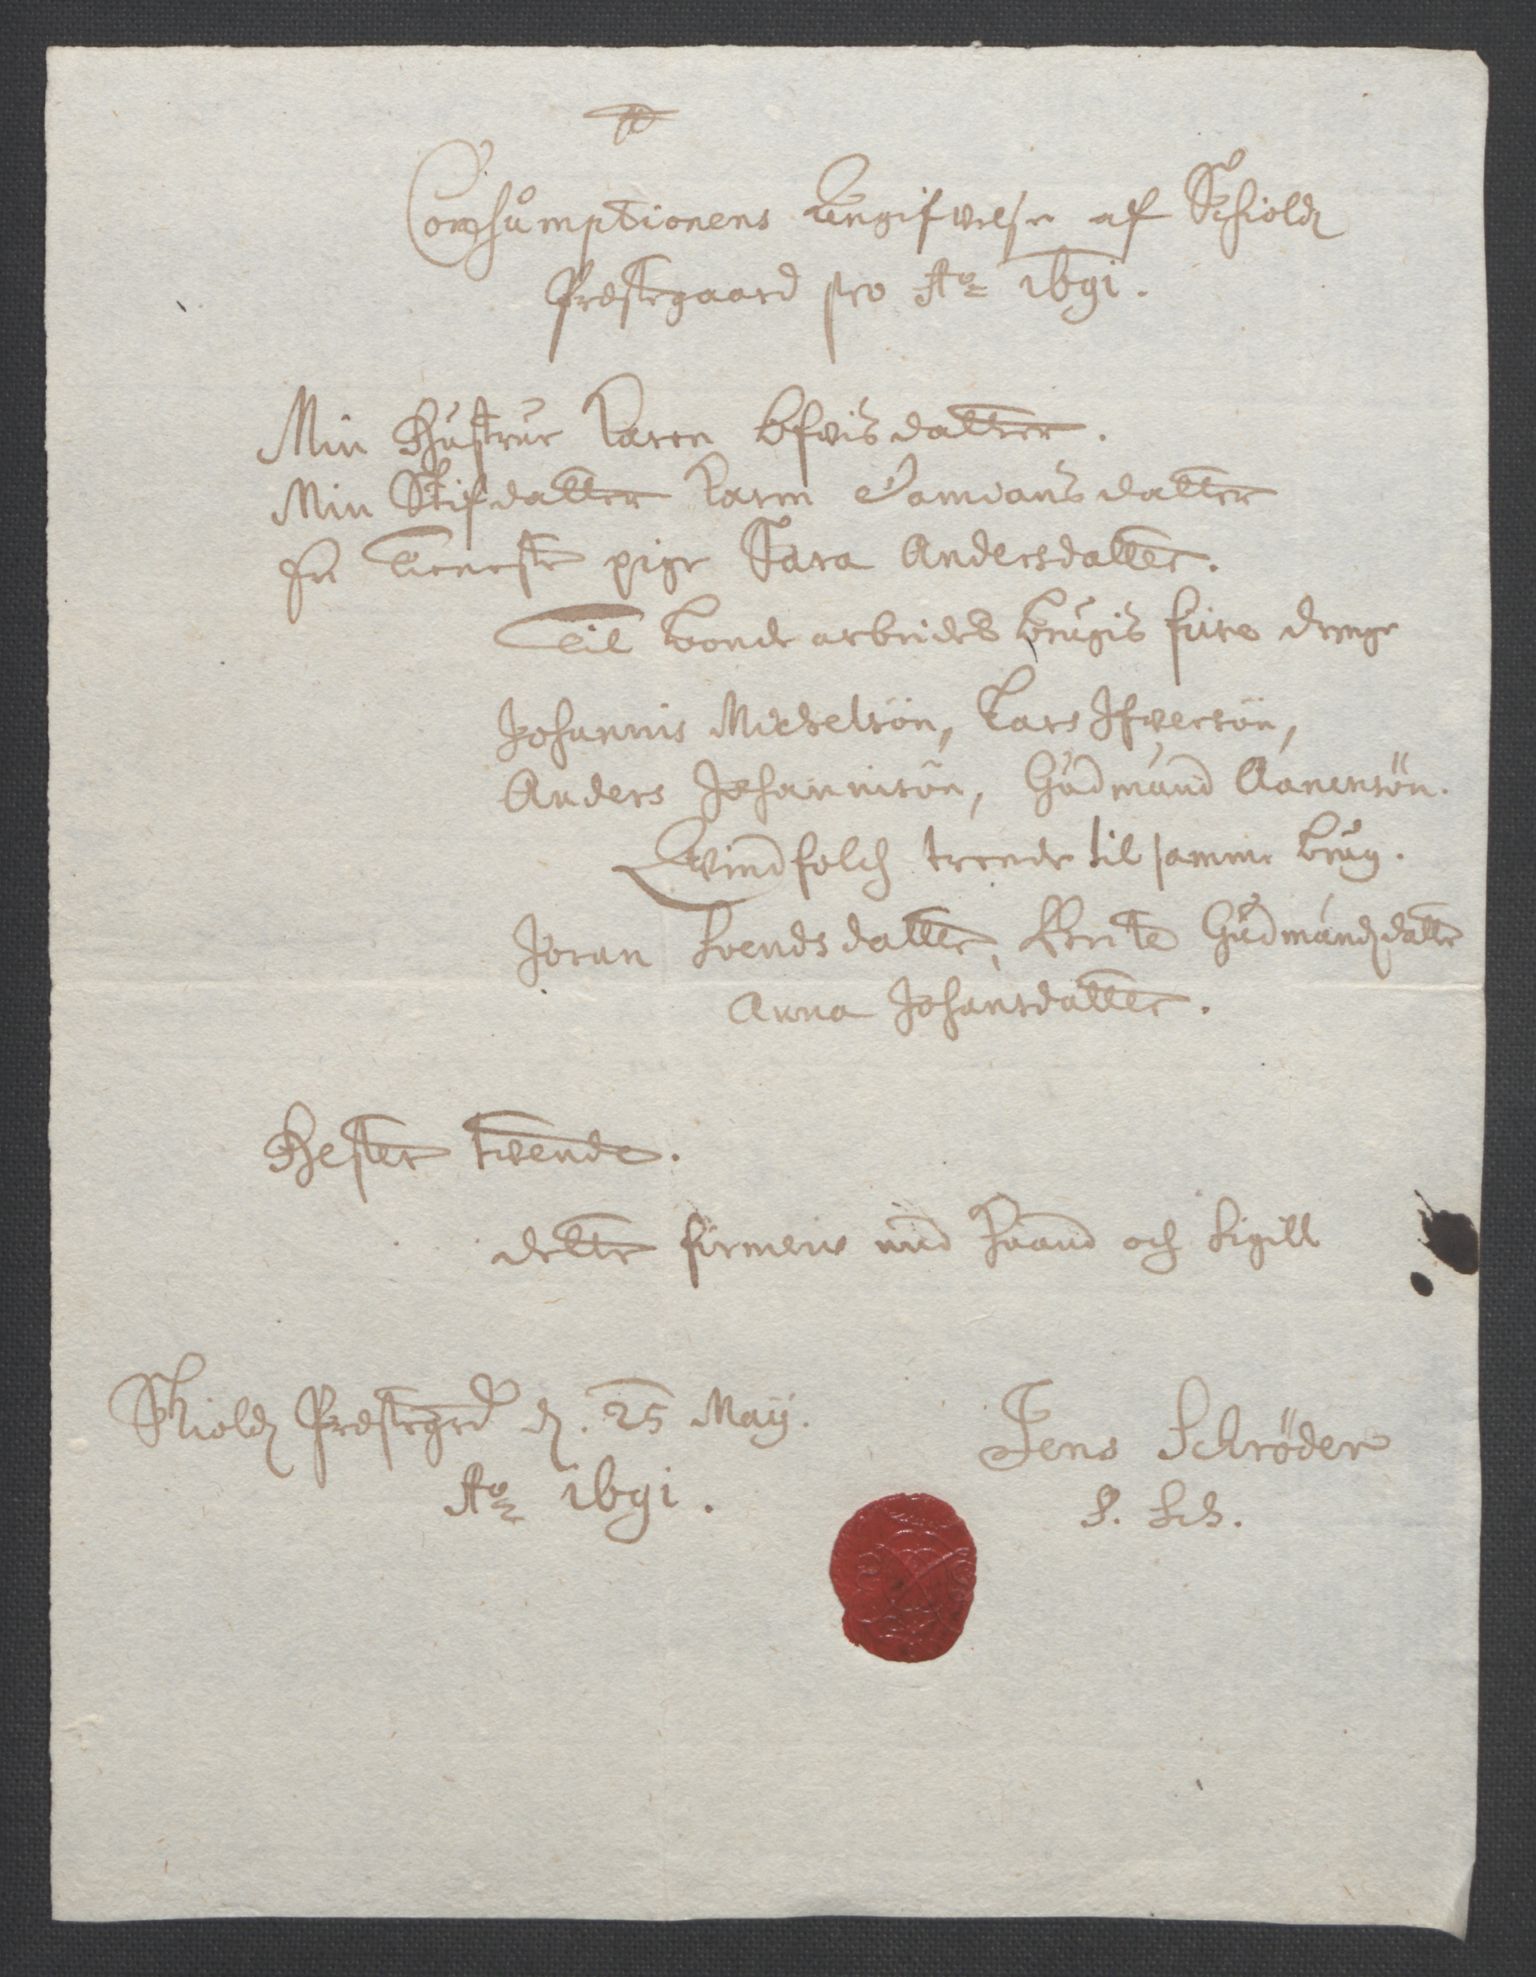 Consumptionens Angifvelse af Schiold
Præstegaard pro Ao 1691.
Min Hustrue Karen Efvis datter.
Min Stifdatter Karen Damians datter
En Tieneste pige Sara Andersdatter.
Til bonde arbeides brugis fiire drenge
Johannis Michelsön, Lars Ifversön,
Anders Johannisön, Gudmund Aanensön.
Qvindfolch trende til samme brug.
Joran Svends datter, Berite Gudmundsdatter
Anna Johansdatter.
Hester tvende.
dette firmerer med Haand och Sigill
Skiold Præstegrd d. 25 Maij.
Ao 1691.
Jens Schrøder
S. Sch.